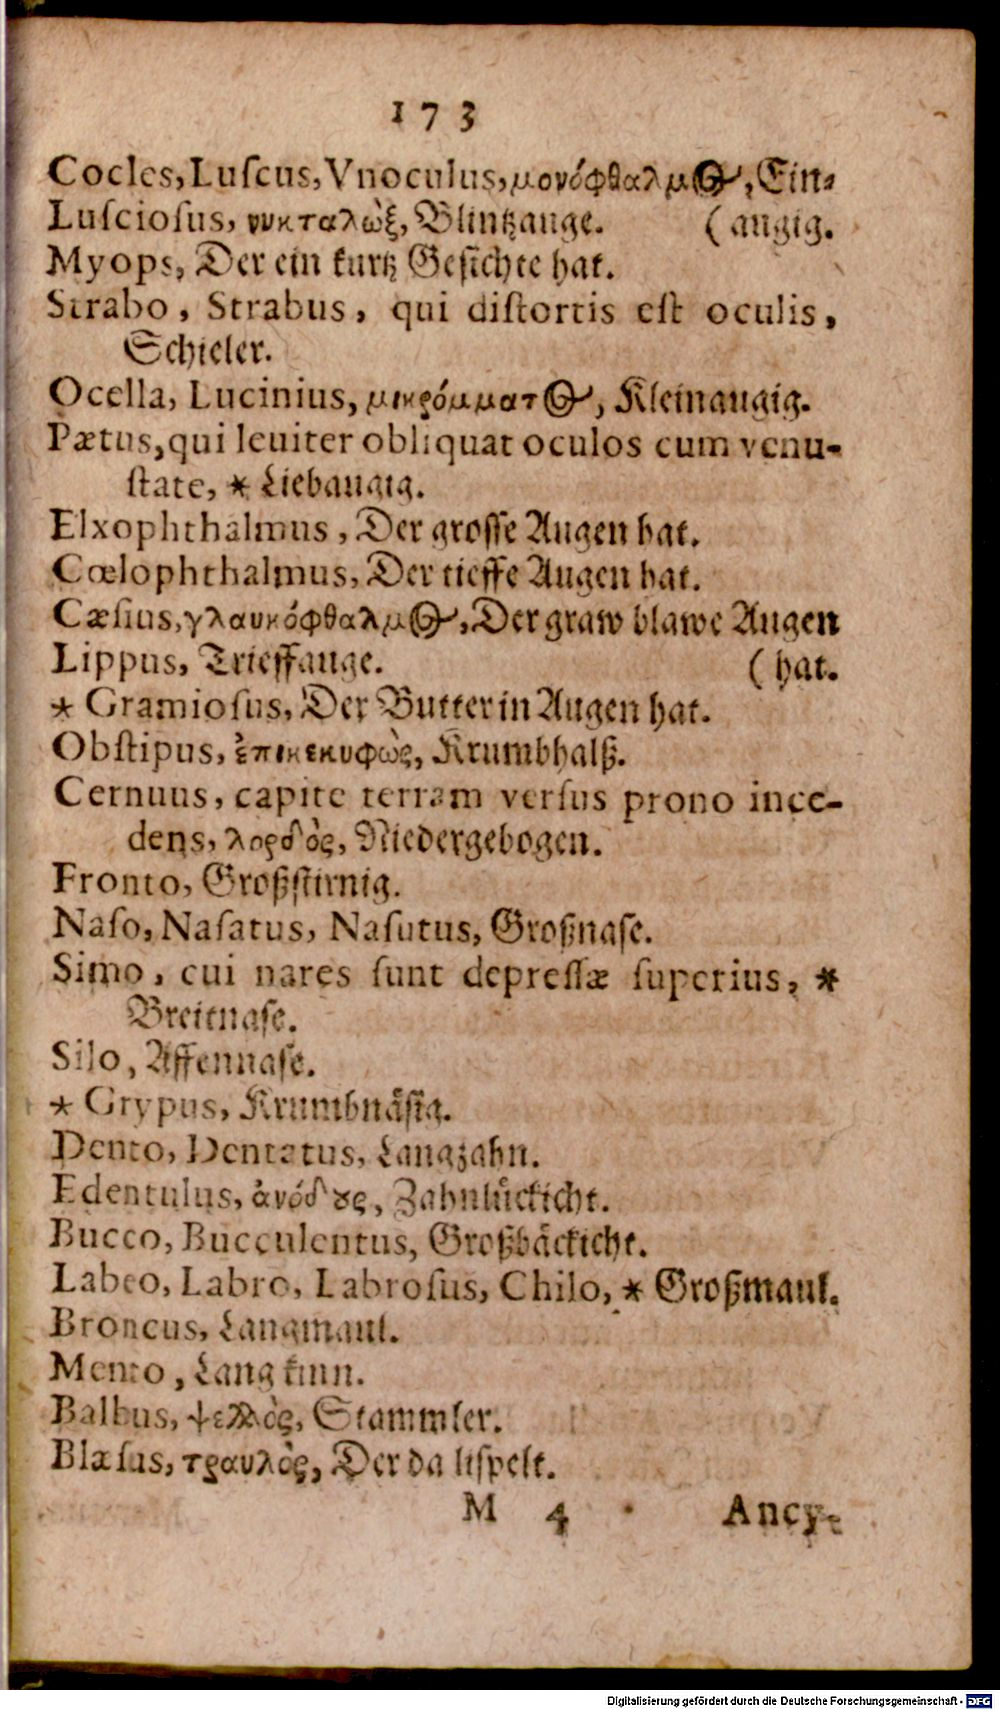 173
Cocles, Luſcus, Vnoculus, μονόφθαλμος, Ein-
Luſcioſus, νυκταλὼξ, Blintzauge. (augig.
Myops, Der ein kurtz Geſichte hat.
Strabo, Strabus, qui diſtortis eſt oculis,
Schieler.
Ocella, Lucinius, μικρόμματος, Kleinaugig.
Pætus, qui leuiter obliquat oculos cum venu-
ſtate, * Liebaugig.
Elxophthalmus, Der groſſe Augen hat.
Cœlophthalmus, Der tieffe Augen hat.
Cæſius, γλαυκόφθαλμος, Der graw blawe Augen
Lippus, Trieffauge. (hat.
* Gramioſus, Der Butter in Augen hat.
Obſtipus, ἐπικεκυφὼς, Krumbhalß.
Cernuus, capite terram verſus prono ince-
dens, λορδὸς, Niedergebogen.
Fronto, Großſtirnig.
Naſo, Naſatus, Naſutus, Großnaſe.
Simo, cui nares ſunt depreſſæ ſuperius, *
Breitnaſe.
Silo, Affennaſe.
* Grypus, Krumbnåſig.
Dento, Dentatus, Langzahn.
Edentulus, ἀνόδȣς, Zahnlůckicht.
Bucco, Bucculentus, Großbåckicht.
Labeo, Labro, Labroſus, Chilo, * Großmaul.
Broncus, Langmaul.
Mento, Lang kinn.
Balbus, ψελλὸς, Stammler.
Blæſus, τραυλὸς, Der da liſpelt.
M 4 Ancy-
Digitalisierung gefördert durch die Deutsche Forschungsgemeinschaft - DFG